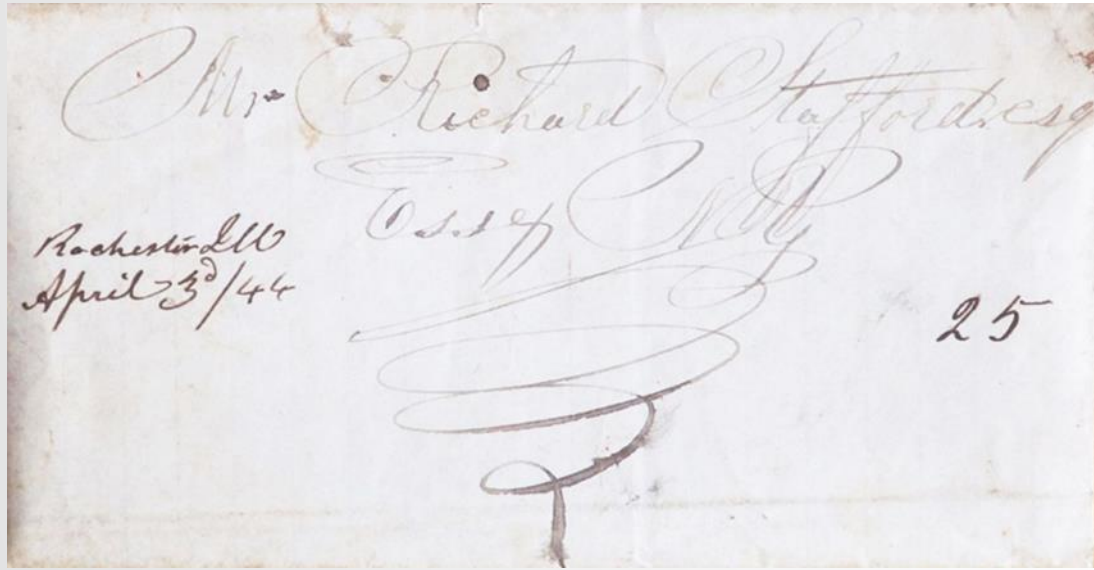 Mr Richard Stafford, esq
Essex NY
Rochester Ill
April 3d/44
25